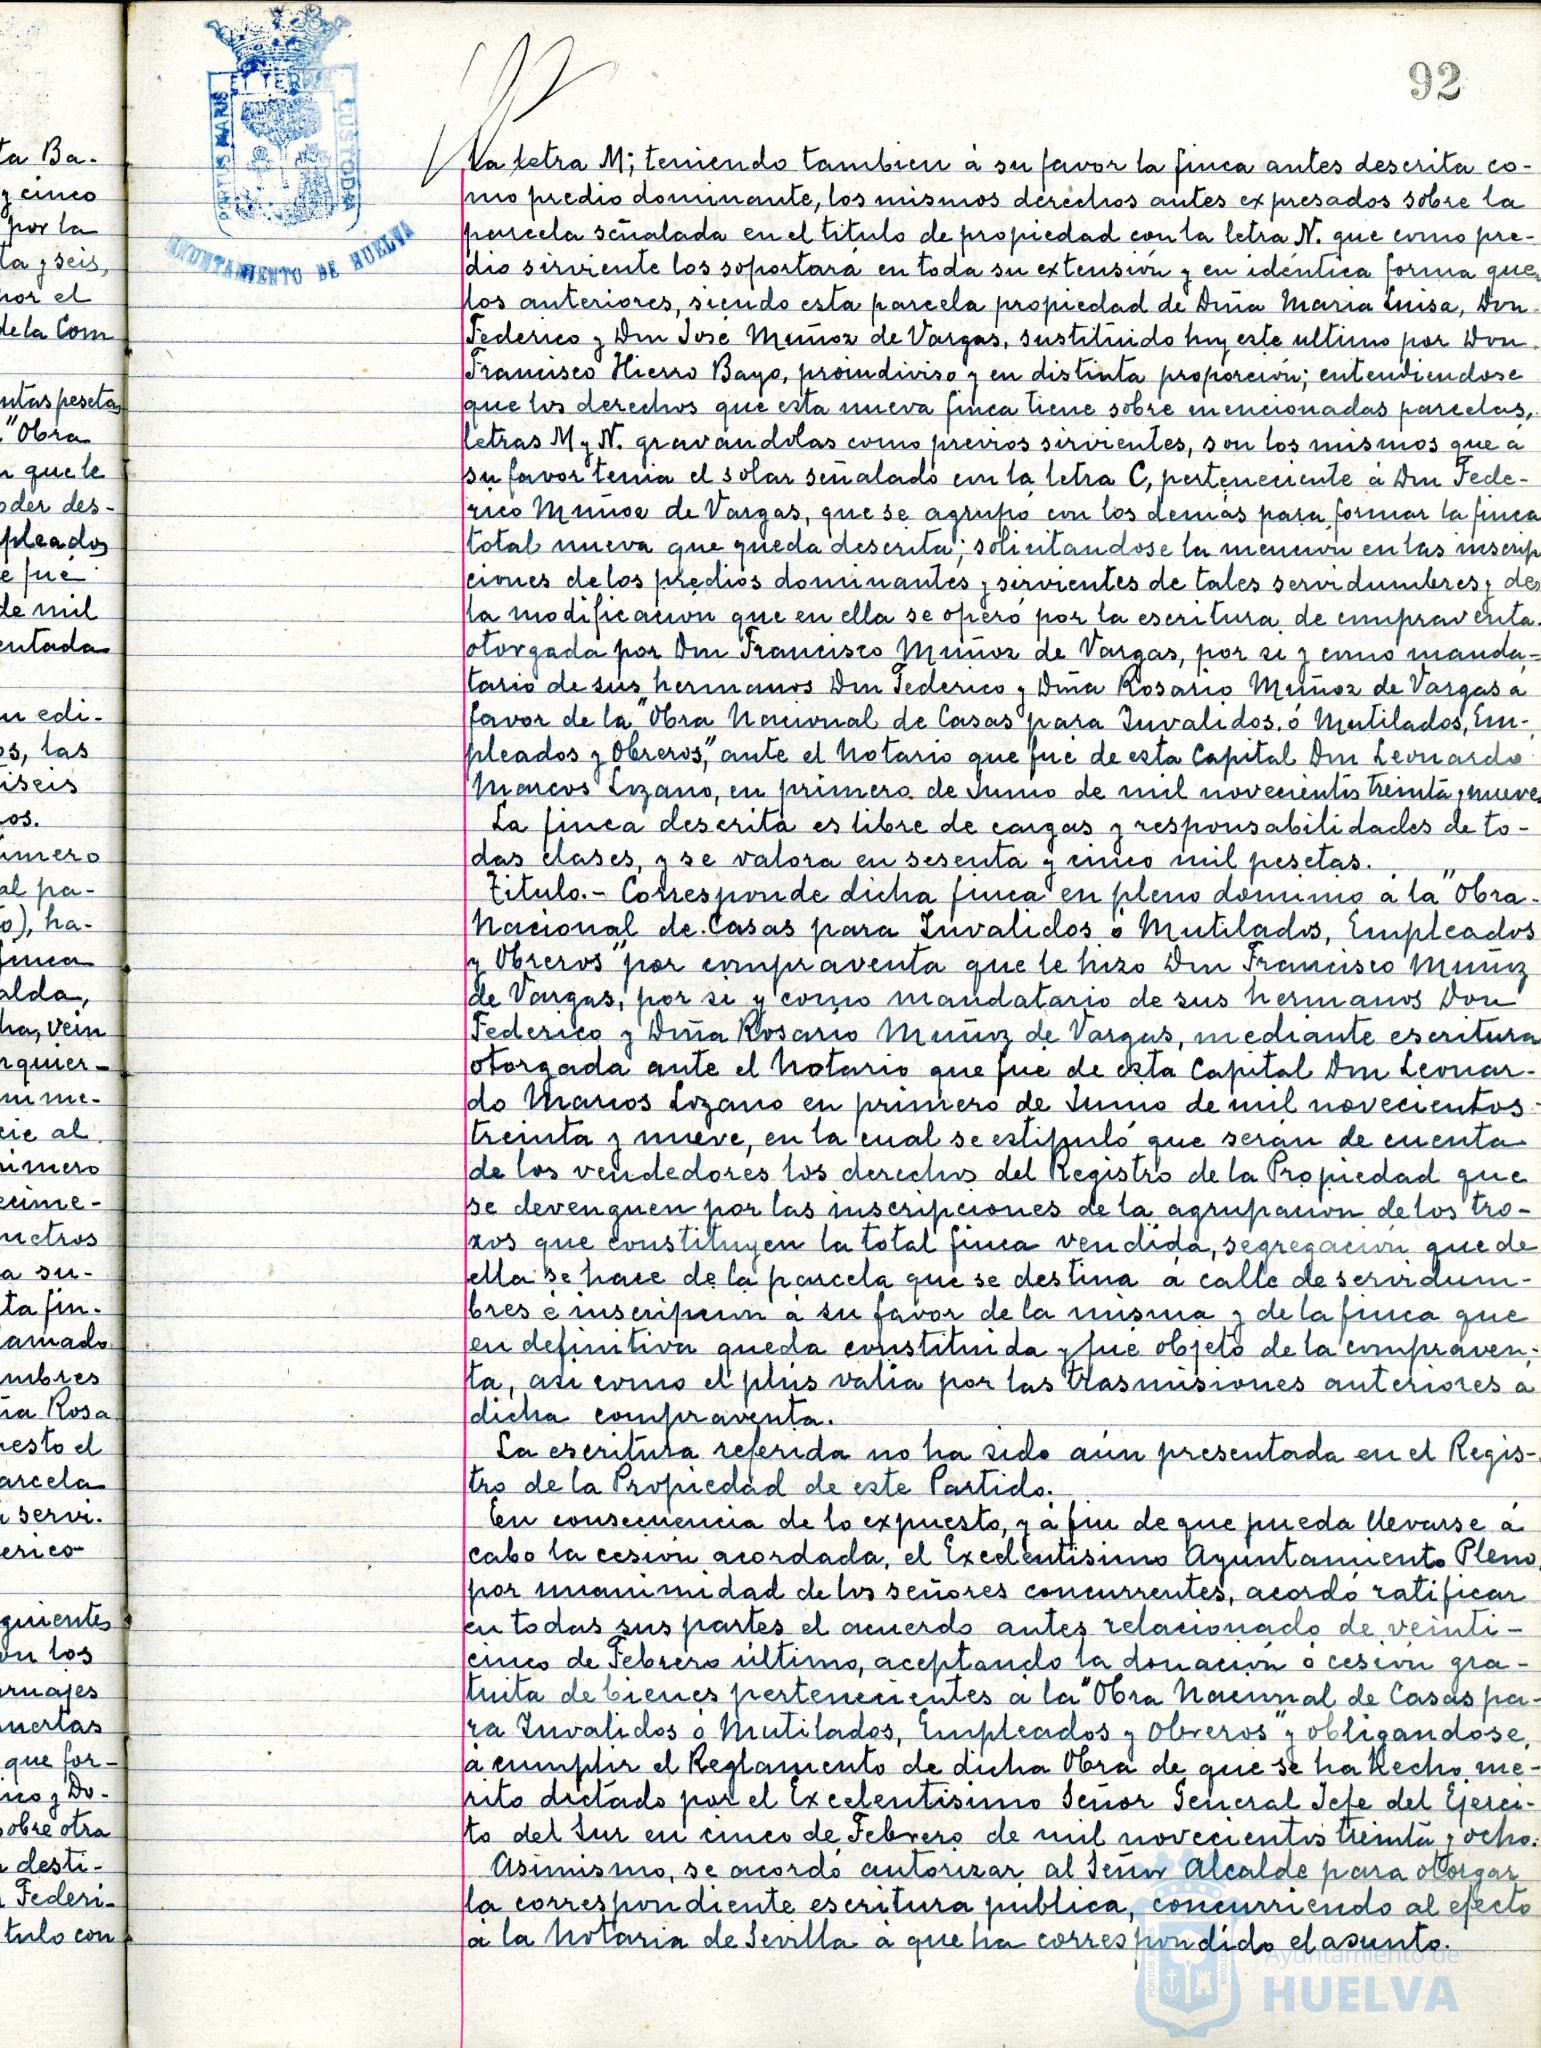 92
PORTUS MARIS ET TERRE CUSTODIA
AYUNTAMIENTO DE HUELVA
la letra M; teniendo tambien á su favor la finca antes descrita co-
mo predio dominante, los mismos derechos antes expresados sobre la
parcela señalada en el titulo de propiedad con la letra N. que como pre-
dio sirviente los soportará en toda su extensión y en idéntica forma que
los anteriores, siendo esta parcela propiedad de Dña Maria Luisa, Don
Federico y Don José Muñoz de Vargas, sustituido hoy este ultimo por Don
Francisco Hierro Bayo, proindiviso y en distinta proporción; entendiendose
que los derechos que esta nueva finca tiene sobre mencionadas parcelas,
letras M y N. gravandolas como previos sirvientes, son los mismos que á
su favor tenia el solar señalado con la letra C, perteneciente á Don Fede-
rico Muñoz de Vargas, que se agrupó con los demás para formar la finca
total nueva que queda descrita; solicitandose la mención en las inscrip
ciones de los predios dominantes y sirvientes de tales servidumbres y de
la modificación que en ella se operó por la escritura de compraventa
otorgada por Don Francisco Muñoz de Vargas, por si y como manda-
tario de sus hermanos Don Federico y Dña Rosario Muñoz de Vargas a
favor de la "Obra Nacional de Casas para Invalidos ó Mutilados, Em-
pleados y Obreros", ante el Notario que fué de esta Capital Don Leonardo
Marcos Lozano, en primero de Junio de mil novecientos treinta y nueve.
La finca descrita es libre de cargas y responsabilidades de to-
das clases, y se valora en sesenta y cinco mil pesetas.
Titulo.- Corresponde dicha finca en pleno dominio a la "Obra
Nacional de Casas para Invalidos ó Mutilados, Empleados
y Obreros" por compraventa que le hizo Don Francisco Muñoz
de Vargas, por si y como mandatario de sus hermanos Don
Federico y Dña Rosario Muñoz de Vargas, mediante escritura
otorgada ante el Notario que fué de esta Capital Don Leonar-
do Marcos Lozano en primero de Junio de mil novecientos
treinta y nueve, en la cual se estipuló que serán de cuenta
de los vendedores los derechos del Registro de la Propiedad que
se devenguen por las inscripciones de la agrupacion de los tro-
zos que constituyen la total finca vendida, segregación que de
ella se hace de la parcela que se destina á calle de servidum-
bres é inscripcion á su favor de la misma y de la finca que
en definitiva queda constituida y fué objeto de la compraven-
ta, asi como el plus valia por las trasmisiones anteriores á
dicha compraventa.
La escritura referida no ha sido aún presentada en el Regis-
tro de la Propiedad de este Partido.
En consecuencia de lo expuesto, y á fin de que pueda llevarse á
cabo la cesión acordada, el Excelentisimo Ayuntamiento Pleno,
por unanimidad de los señores concurrentes, acordó ratificar
en todas sus partes el acuerdo antes relacionado de veinti-
cinco de Febrero último, aceptando la donación ó cesión gra-
tuita de bienes pertenecientes a la "Obra Nacional de Casas pa-
ra Invalidos ó Mutilados, Empleados y Obreros" y obligandose,
á cumplir el Reglamento de dicha Obra de que se ha hecho mé-
rito dictado por el Excelentisimo Señor General Jefe del Ejerci-
to del Sur en cinco de Febrero de mil novecientos treinta y ocho.
Asimismo, se acordó autorizar al Señor Alcalde para otorgar
la correspondiente escritura publica, concurriendo al efecto
á la Notaria de Sevilla á que ha correspondido el asunto.
Ayuntamiento de
HUELVA
ta Ba-
y cinco
por la
ta y seis,
por el
de la Com
ntas pesetas
"Obra
n que le
oder des-
pleados
e fué
de mil
entada
n edi-
os, las
iseis
os.
imero
al pa-
o), ha-
finca
alda,
ha, vein
nquier-
nme-
cie al
rimero
ecime-
metros
a su-
ta fin-
lamado
umbres
ña Rosa
resto el
arcela
servi-
erico
guientes
on los
rruajes
uertas
que for-
ico y Do-
sobre otra
desti-
Federi-
tulo con